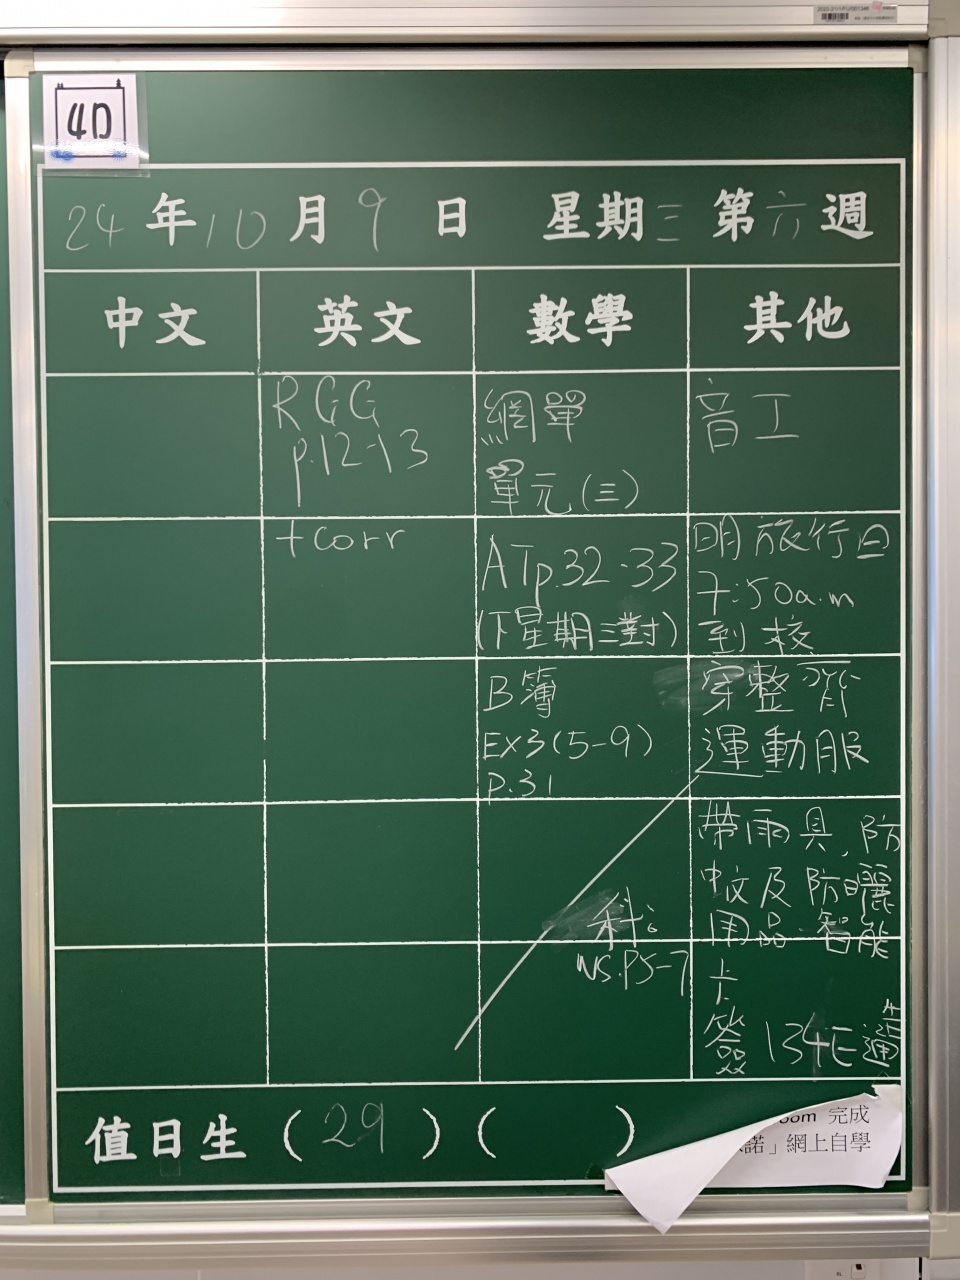 4D
24年10月9日 星期三第六週
中文 英文 數學 其他
RGG
p.12-13
+corr
網單
單元(三)
ATp.32-33
(下星期三對)
B簿
Ex3(5-9)
p.31
科:
WS.P5-7
音工
明旅行日
7:50a.m
到校
穿整齊
運動服
帶雨具,防
蚊及防曬
用品 智能
卡
簽134E通告
值日生(29)( )
oom 完成
諾」網上自學